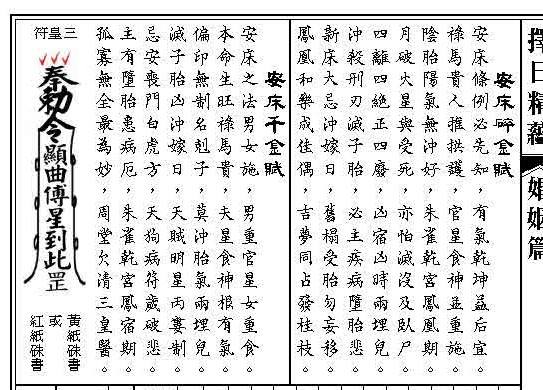 擇日精蘊
婚姻篇
安床碎金賦
安床條例必先知，有氣乾坤益后宜。
祿馬貴人推拱護，官星食神並重施。
陰胎陽氣無沖好，朱雀乾宮鳳凰期。
月破火星與受死，亦怕滅沒及臥尸。
四離四絕正四廢，凶宿凶時兩埋兒。
沖殺刑刃滅子胎，必主疾病墮胎悲。
新床大忌沖嫁日，舊榻受胎勿妄移。
鳳凰和樂成佳偶，吉夢同占發桂枝。
安床千金賦
安床之法男女施，男重官星女重食。
本命生旺祿馬貴，夫星食神根有氣。
偏印無制名剋子，莫沖胎氣兩埋兒。
滅子胎凶沖嫁日，天賊明星丙寡制。
忌安喪門白虎方，天狗病符歲破悲。
主有墮胎患病厄，朱雀乾宮鳳宿期。
孤寡無全最為妙，周堂欠清三皇醫。
三皇符
奉勅令顯曲傅星到此罡
黃紙硃書
或
紅紙硃書